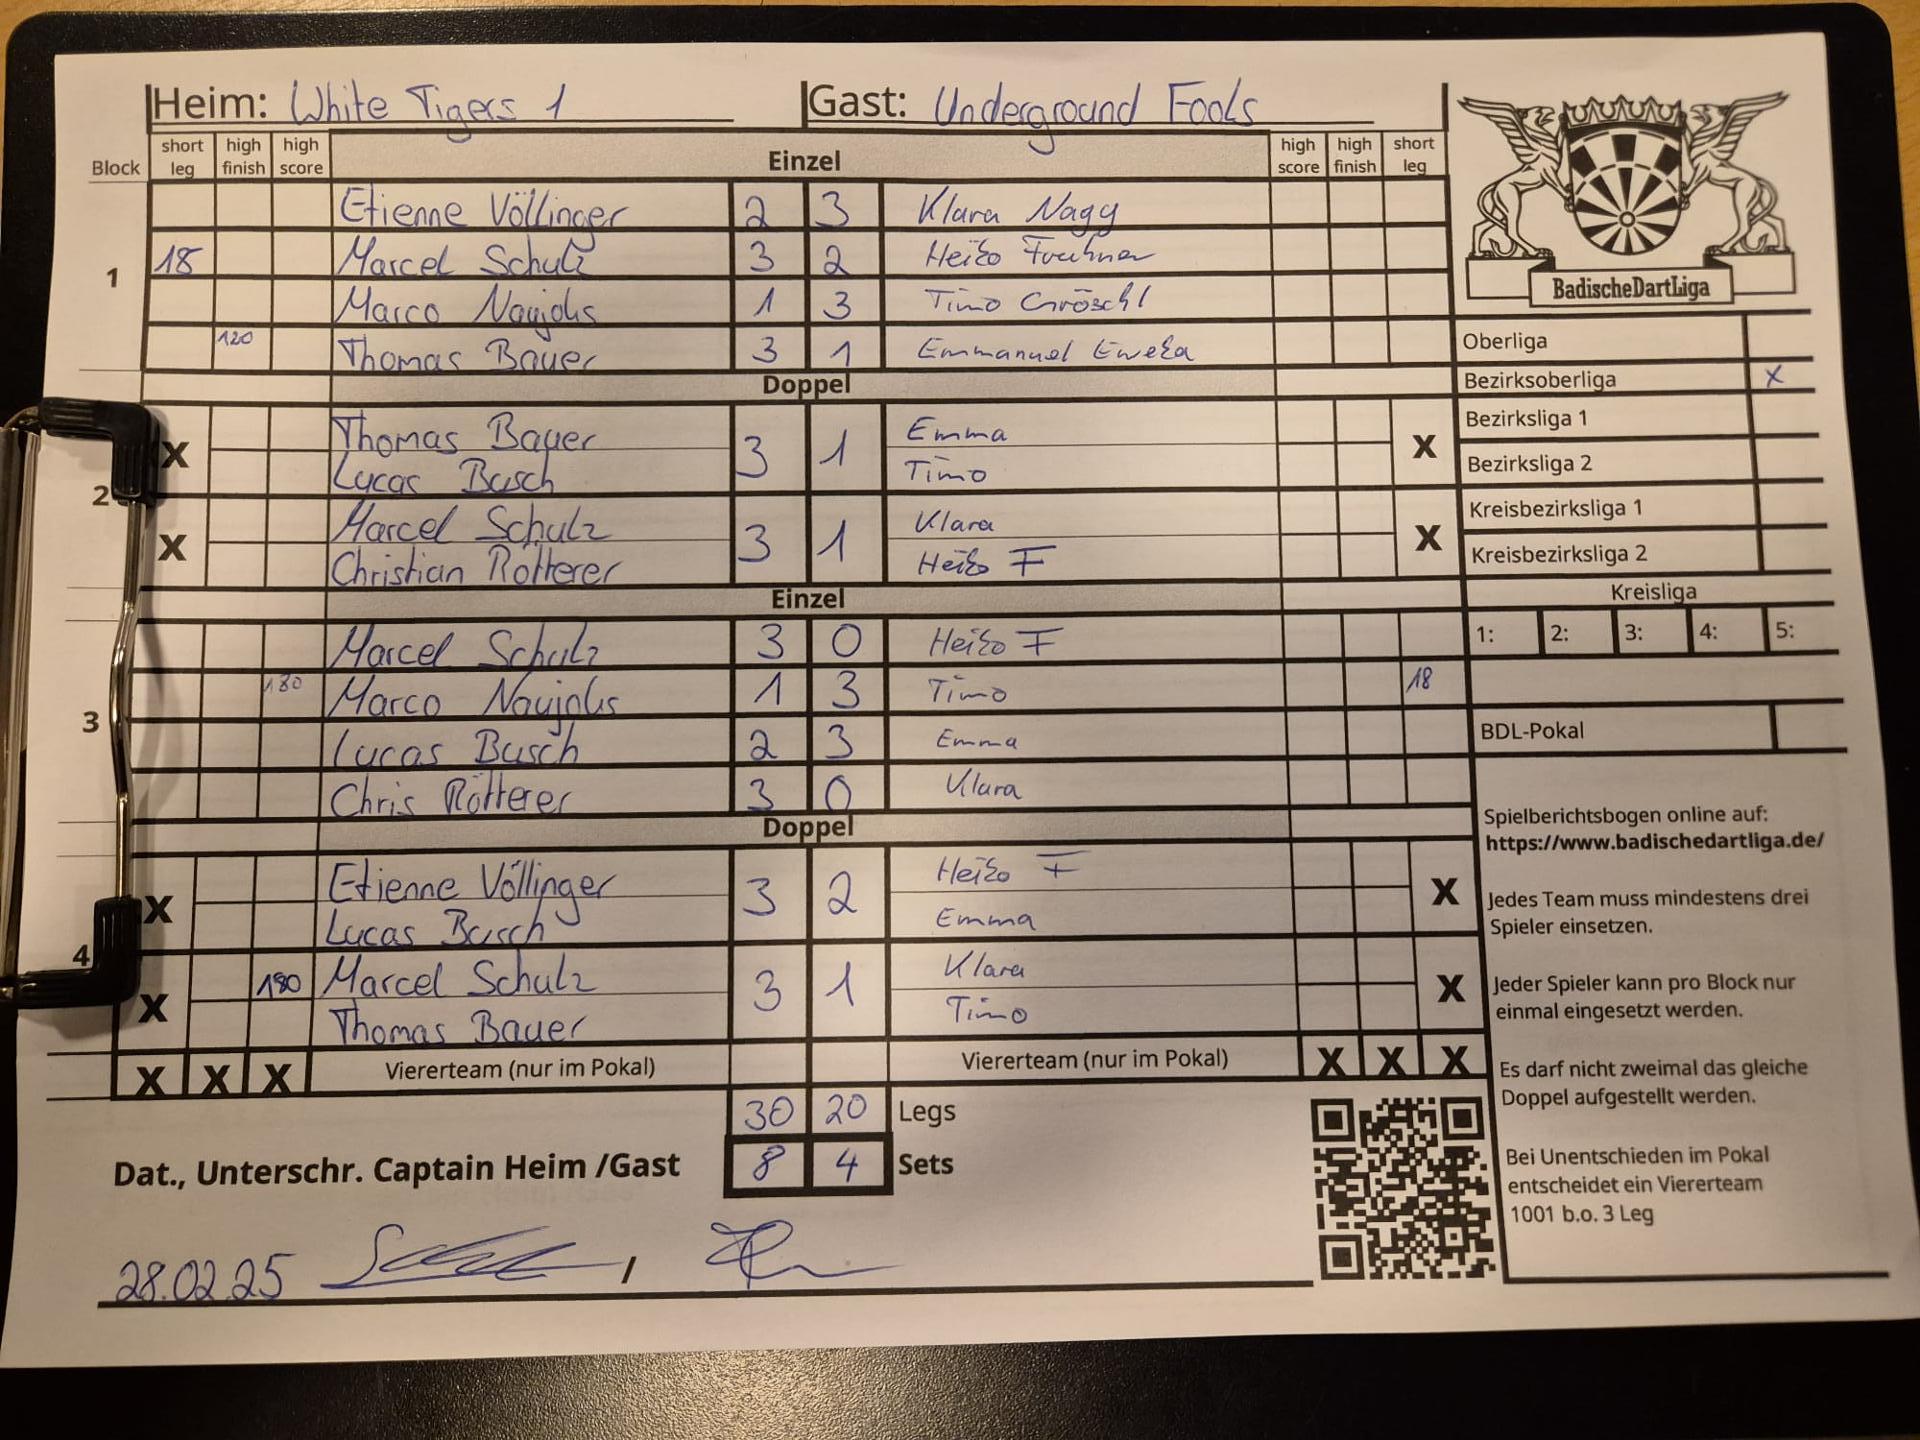 Heim: White Tigers 1 Gast: Underground Fools
Block short leg high finish high score Einzel high score high finish short leg
1
Etienne Völlinger 2 3 Klara Nagy
18 Marcel Schulz 3 2 Heiko
Marco Naujoks 1 3 Timo Gröschl
120 Thomas Bauer 3 1 Emmanuel Eweka
Doppel
2
X Thomas Bauer 3 1 Emma X
Lucas Busch Timo
X Marcel Schulz 3 1 Klara X
Christian Rötterer Heiko F
Einzel
3
Marcel Schulz 3 0 Heiko F
180 Marco Naujoks 1 3 Timo 18
Lucas Busch 2 3 Emma
Chris Rötterer 3 0 Klara
Doppel
4
X Etienne Völlinger 3 2 Heiko F X
Lucas Busch Emma
X 180 Marcel Schulz 3 1 Klara X
Thomas Bauer Timo
X X X Viererteam (nur im Pokal) Viererteam (nur im Pokal) X X X
30 20 Legs
Dat., Unterschr. Captain Heim /Gast 8 4 Sets
28.02.25 /
BadischeDartLiga
Oberliga
Bezirksoberliga x
Bezirksliga 1
Bezirksliga 2
Kreisbezirksliga 1
Kreisbezirksliga 2
Kreisliga
1: 2: 3: 4: 5:
BDL-Pokal
Spielberichtsbogen online auf:
https://www.badischedartliga.de/
Jedes Team muss mindestens drei
Spieler einsetzen.
Jeder Spieler kann pro Block nur
einmal eingesetzt werden.
Es darf nicht zweimal das gleiche
Doppel aufgestellt werden.
Bei Unentschieden im Pokal
entscheidet ein Viererteam
1001 b.o. 3 Leg